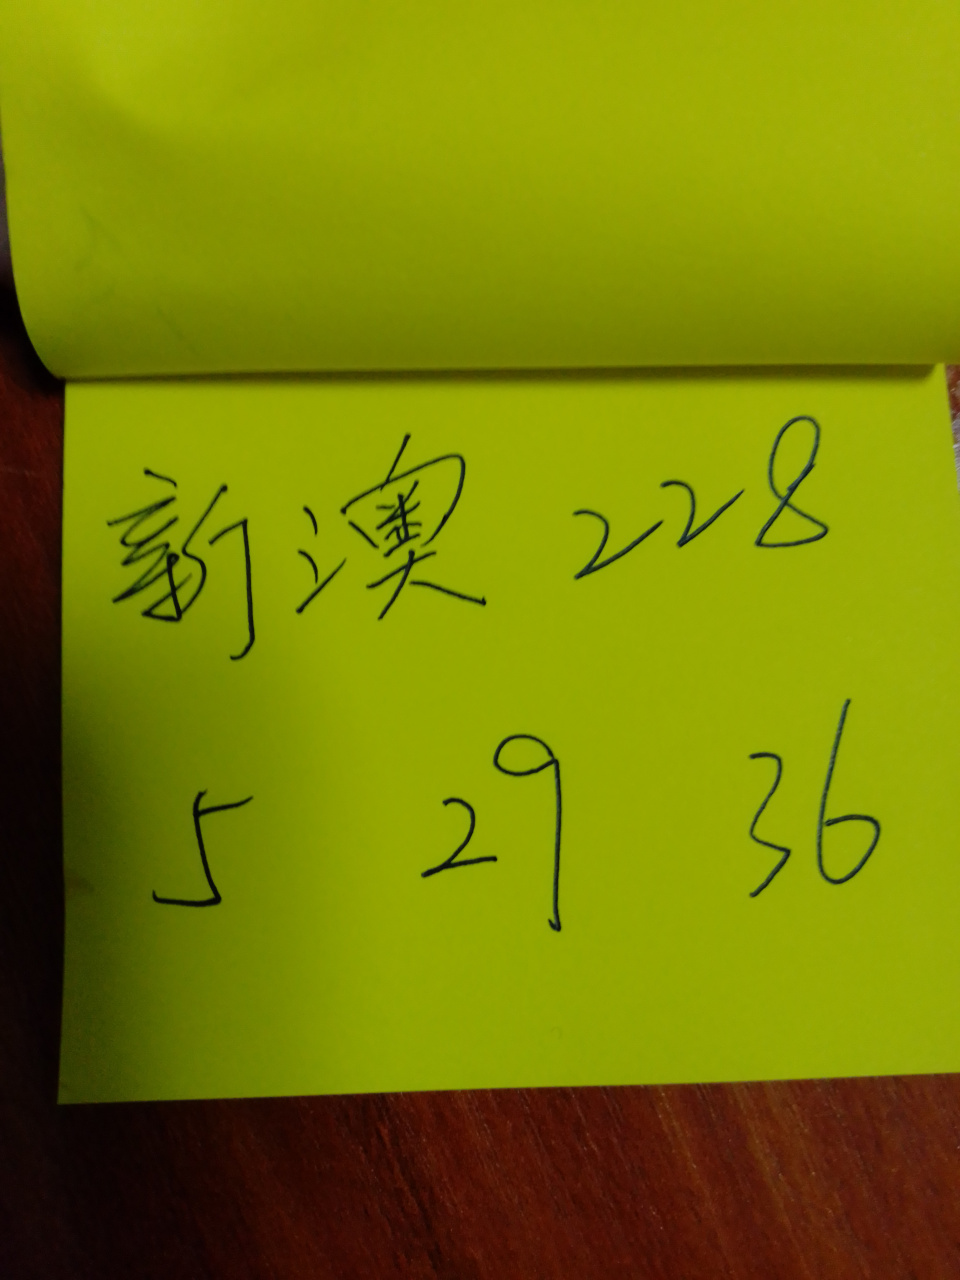 新澳 228
5 29 36